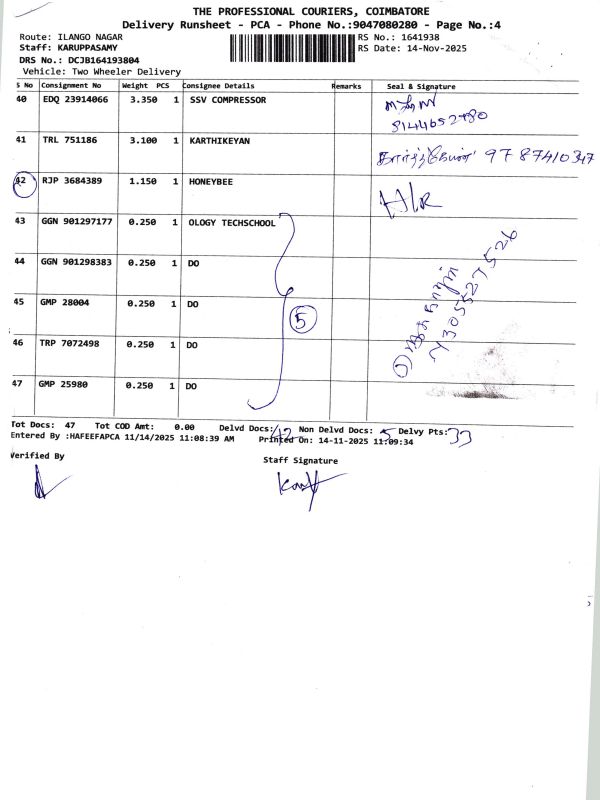 THE PROFESSIONAL COURIERS, COIMBATORE
Delivery Runsheet - PCA - Phone No.:9047080280 - Page No.:4
Route: ILANGO NAGAR
RS No.: 1641938
Staff: KARUPPASAMY
RS Date: 14-Nov-2025
DRS No.: DCJB164193804
Vehicle: Two Wheeler Delivery
S No Consignment No Weight PCS Consignee Details Remarks Seal & Signature
40 EDQ 23914066 3.350 1 SSV COMPRESSOR
41 TRL 751186 3.100 1 KARTHIKEYAN கார்த்திகேயன் 9787410347
42 RJP 3684389 1.150 1 HONEYBEE H/R
43 GGN 901297177 0.250 1 OLOGY TECHSCHOOL
44 GGN 901298383 0.250 1 DO
45 GMP 28004 0.250 1 DO
5
46 TRP 7072498 0.250 1 DO
47 GMP 25980 0.250 1 DO
Tot Docs: 47 Tot COD Amt: 0.00 Delvd Docs: 42 Non Delvd Docs: 5 Delvy Pts: 33
Entered By :HAFEEFAPCA 11/14/2025 11:08:39 AM Printed On: 14-11-2025 11:09:34
Verified By
Staff Signature